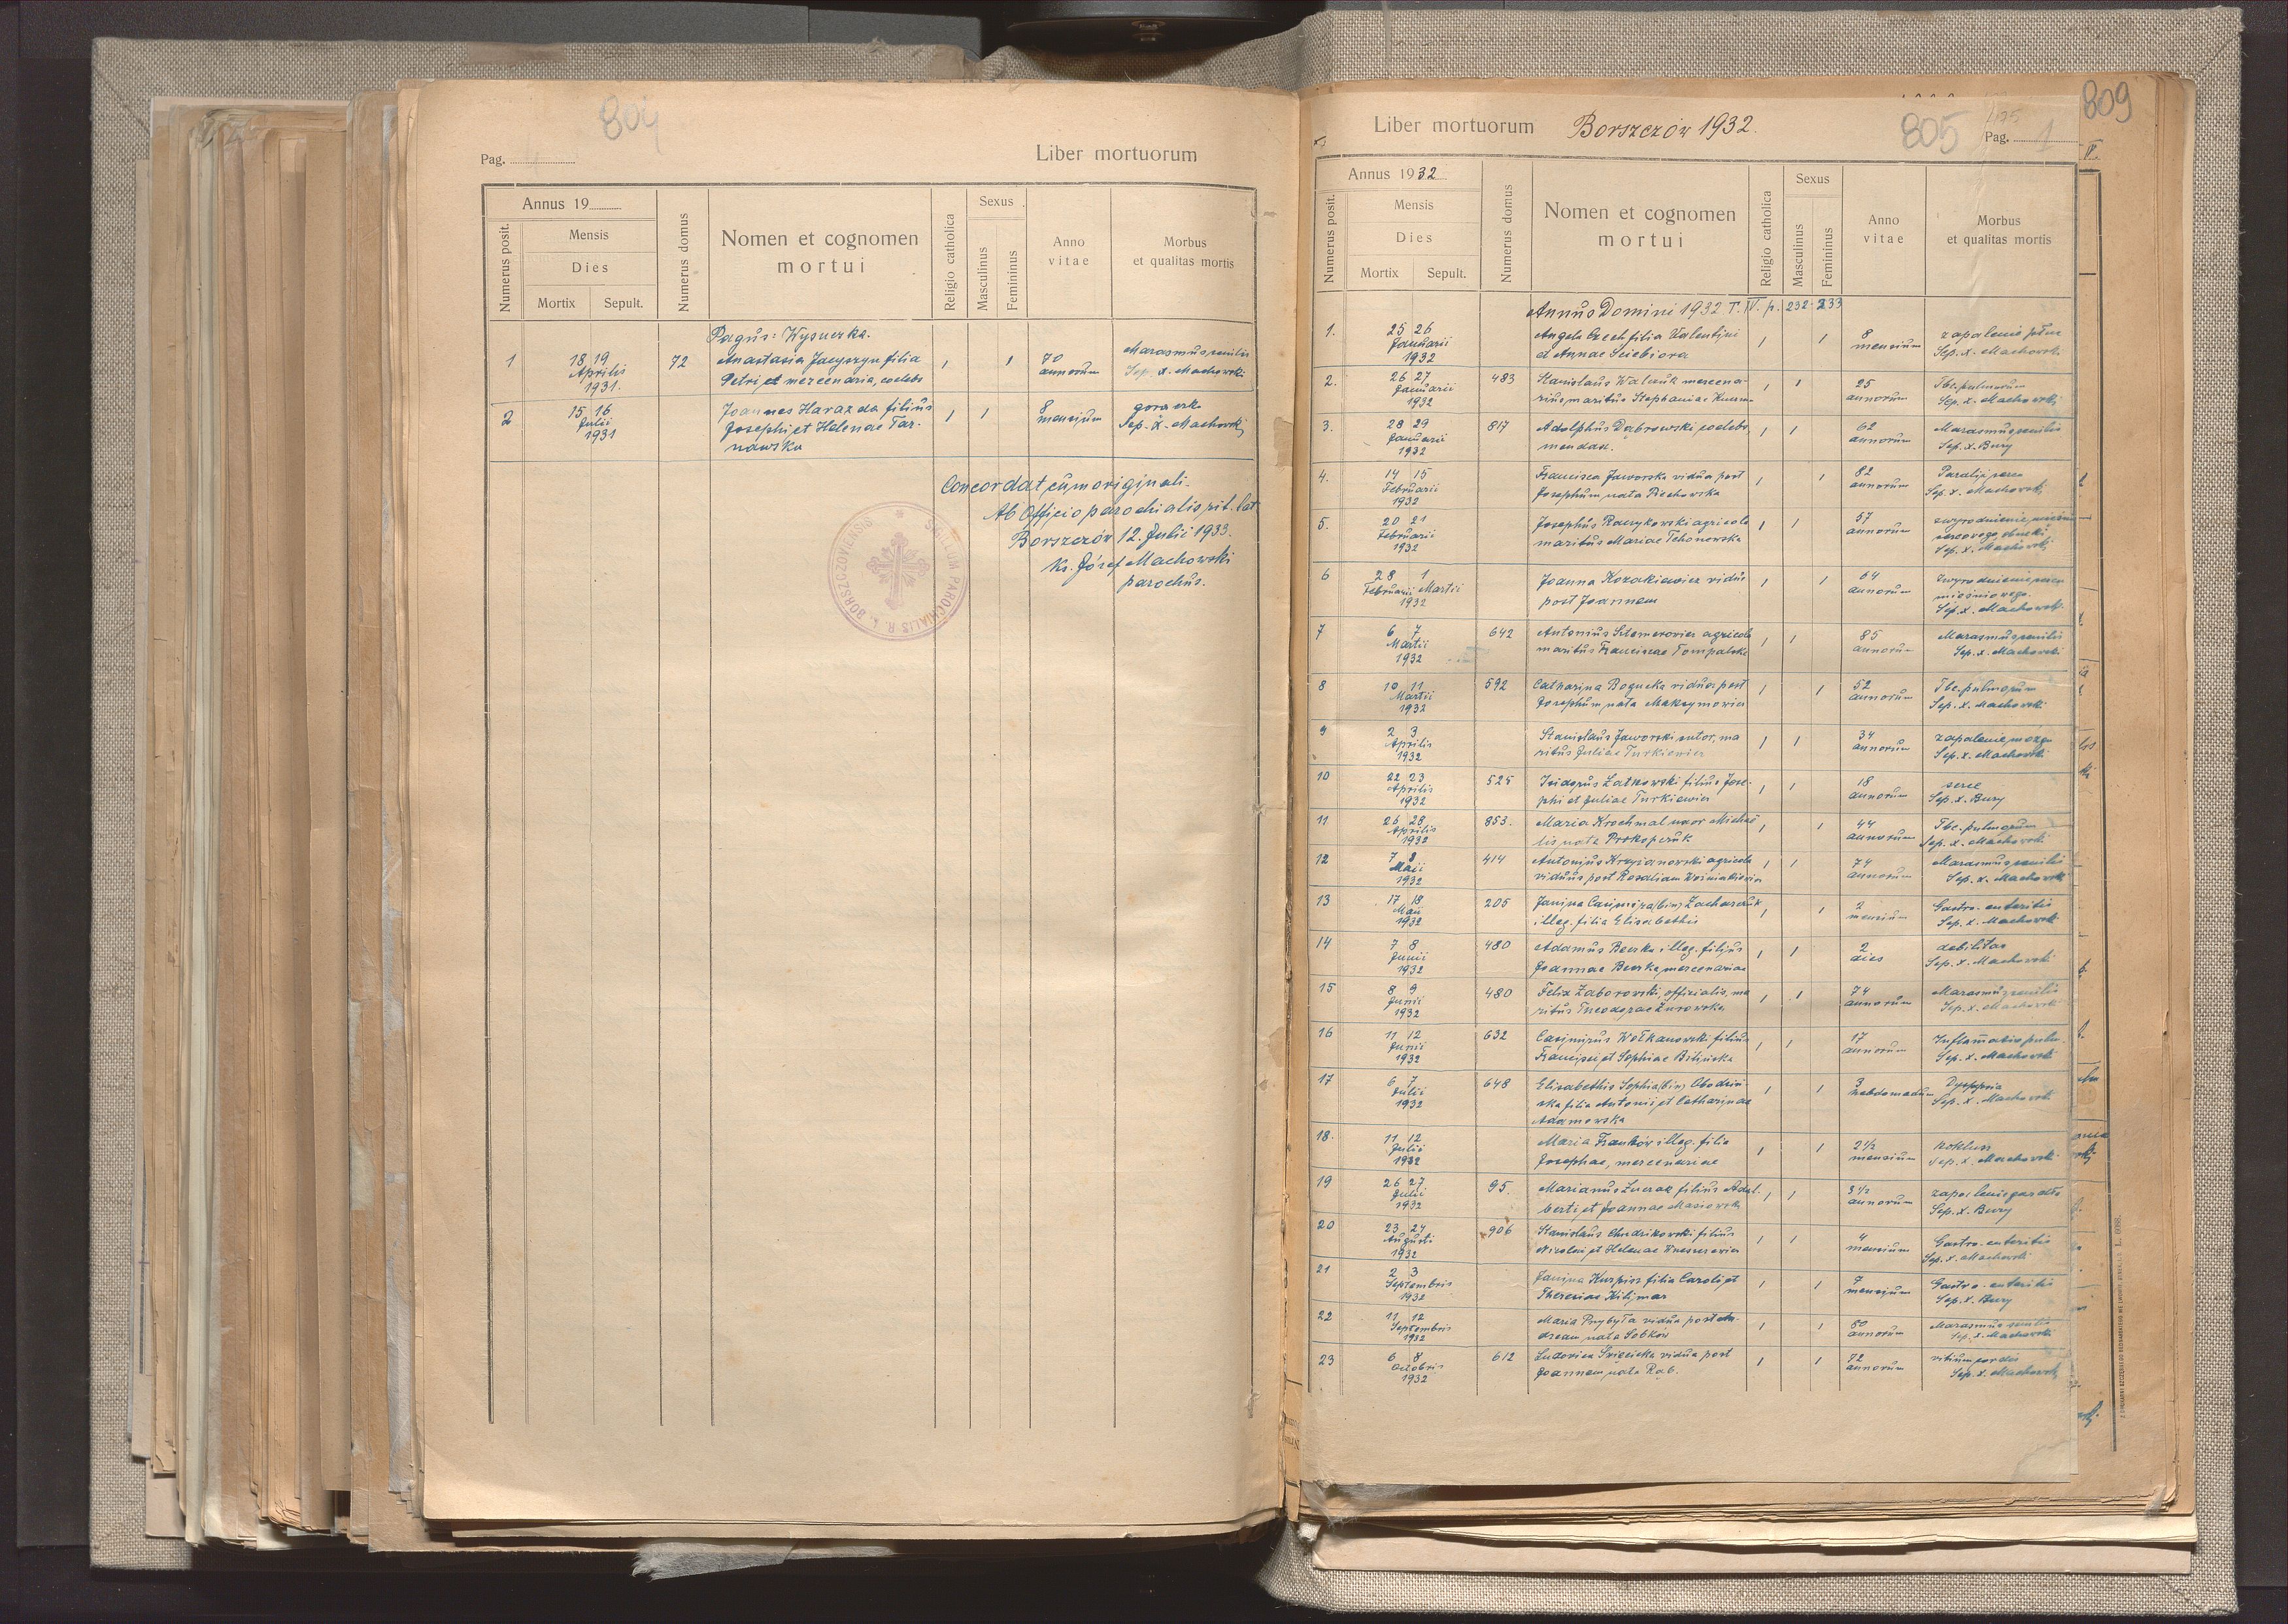 804
Pag.
Liber mortuorum
Annus 19
Numerus posit.
Mensis
Dies
Mortix Sepult.
Numerus domus
Nomen et cognomen
mortui
Religio catholica
Sexus
Masculinus
Femininus
Anno
vitae
Morbus
et qualitas mortis
Pagus: Wysuczka.
1 18 19 72 Anastasia Jacyszyn filia 1 1 70 Marasmus senilis
Aprilis Petri et mercenaria, coelebs annorum Sep. x. Machowski
1931.
2 15 16 Joannes Harazda filius 1 1 8
Julii Josephi et Helenae Tar- mensium Sep. x. Machowski
1931 nawska
Concordat cum originali.
Ab Officio parochialis rit. lat.
Borszczów 12. Julii 1933.
Ks. Józef Machowski
parochus.
SIGILLUM PAROCHIALIS R. L. BORSZCZOVENSIS
809
Liber mortuorum Borszczów 1932.
805
Pag. 1
Annus 1932
Numerus posit.
Mensis
Dies
Mortix Sepult.
Numerus domus
Nomen et cognomen
mortui
Religio catholica
Sexus
Masculinus
Femininus
Anno
vitae
Morbus
et qualitas mortis
Annus Domini 1932 T. IV. p. 232-233
1. 25 26 Angela Czech filia Valentini 1 1 8 zapalenie płuc
Januarii et Annae Sciebiora mensium Sep. x. Machowski
1932
2. 26 27 483 Stanislaus Walczuk mercena- 1 1 25 Tbc. pulmorum
Januarii rius maritus Stephaniae annorum Sep. x. Machowski
1932
3. 28 29 817 Adolphus Dąbrowski coelebs 1 1 62 Marasmus senilis
Januarii annorum Sep. x. Bury
1932
4. 14 15 Francisca Jaworska vidua post 1 1 82
Februarii Josephum nata annorum Sep. x. Machowski
1932
5. 20 21 Josephus agricola 1 1 57 zwyrodnienie
Februarii maritus Mariae annorum sercowego
1932 Sep. x. Machowski
6 28 1 Joanna Kozakiewicz vidua 1 1 64 zwyrodnienie
Februarii Martii post Joannem annorum mięśniowego.
1932 Sep. x. Machowski
7 6 7 642 Antonius agricola 1 1 85 Marasmus senilis
Martii maritus Franciscae annorum Sep. x. Machowski
1932
8 10 11 592 Catharina Bogucka vidua post 1 1 52 Tbc. pulmorum
Martii Josephum nata Maksymowicz annorum Sep. x. Machowski
1932
9 2 3 Stanislaus Jaworski sutor, ma 1 1 34 zapalenie mózgu
Aprilis ritus Juliae Turkiewicz annorum Sep. x. Machowski
1932
10 22 23 525 Isidorus Łatkowski filius Jose- 1 1 18 serce
Aprilis phi et Juliae Turkiewicz annorum Sep. x. Bury
1932
11 26 28 853. Maria Krochmal uxor Michaë 1 1 44 Tbc. pulmorum
Aprilis lis nata Prokopczuk annorum Sep. x. Machowski
1932
12 7 8 414 Antonius Krzyżanowski agricola 1 1 74 Marasmus senilis
Maii viduus post Rosaliam annorum Sep. x. Machowski
1932
13 17 18 205 Janina Casimira (bin) Zacharczuk 1 1 2 Gastro-enteritis
Maii illeg. filia Elisabethis mensium Sep. x. Machowski
1932
14 7 8 480 Adamus illeg. filius 1 1 2 debilitas
Junii Joannae mercenariae dies Sep. x. Machowski
1932
15 8 9 480 Felix Zaborowski, officialis, ma 1 1 74 Marasmus senilis
Junii ritus Theodorae Żurowska annorum Sep. x. Machowski
1932
16 11 12 632 Casimirus Wołkanowski filius 1 1 17 Inflamatio pulm.
Junii Francisci et Sophiae Bilińska annorum Sep. x. Machowski
1932
17 6 7 648 Elisabethis Sophia (bin) Obodziń- 1 1 3
Julii ska filia Antonii et Catharinae hebdomadum Sep. x. Machowski
1932 Adamowska
18. 11 12 Maria illeg. filia 1 1 2 1/2 koklusz
Julii Josephae, mercenariae mensium Sep. x. Machowski
1932
19 26 27 95. Marianus filius Adal- 1 1 3 1/2 zapalenie gardła
Julii berti et Joannae annorum Sep. x. Bury
1932
20 23 24 906 Stanislaus Chudzikowski filius 1 1 4 Gastro-enteritis
Augusti Nicolai et Helenae mensium Sep. x. Machowski
1932
21 2 3 Janina filia Caroli et 1 1 7 Gastro-enteritis
Septembris Theresiae mensium Sep. x. Bury
1932
22 11 12 Maria Przybyła vidua post An- 1 1 80 Marasmus senilis
Septembris dream nata Sobków annorum Sep. x. Machowski
1932
23 6 8 612 Ludovica vidua post 1 1 72 vitium cordis
Octobris Joannem nata Rab. annorum Sep. x. Machowski
1932